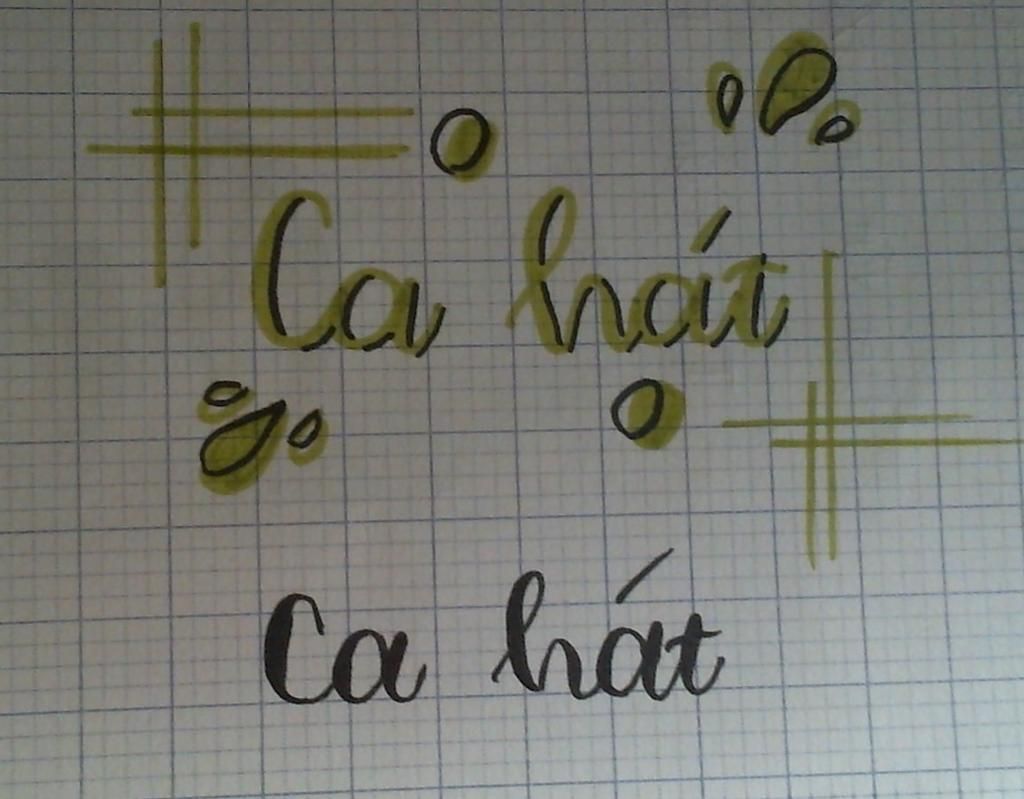 Ca hát
Ca hát